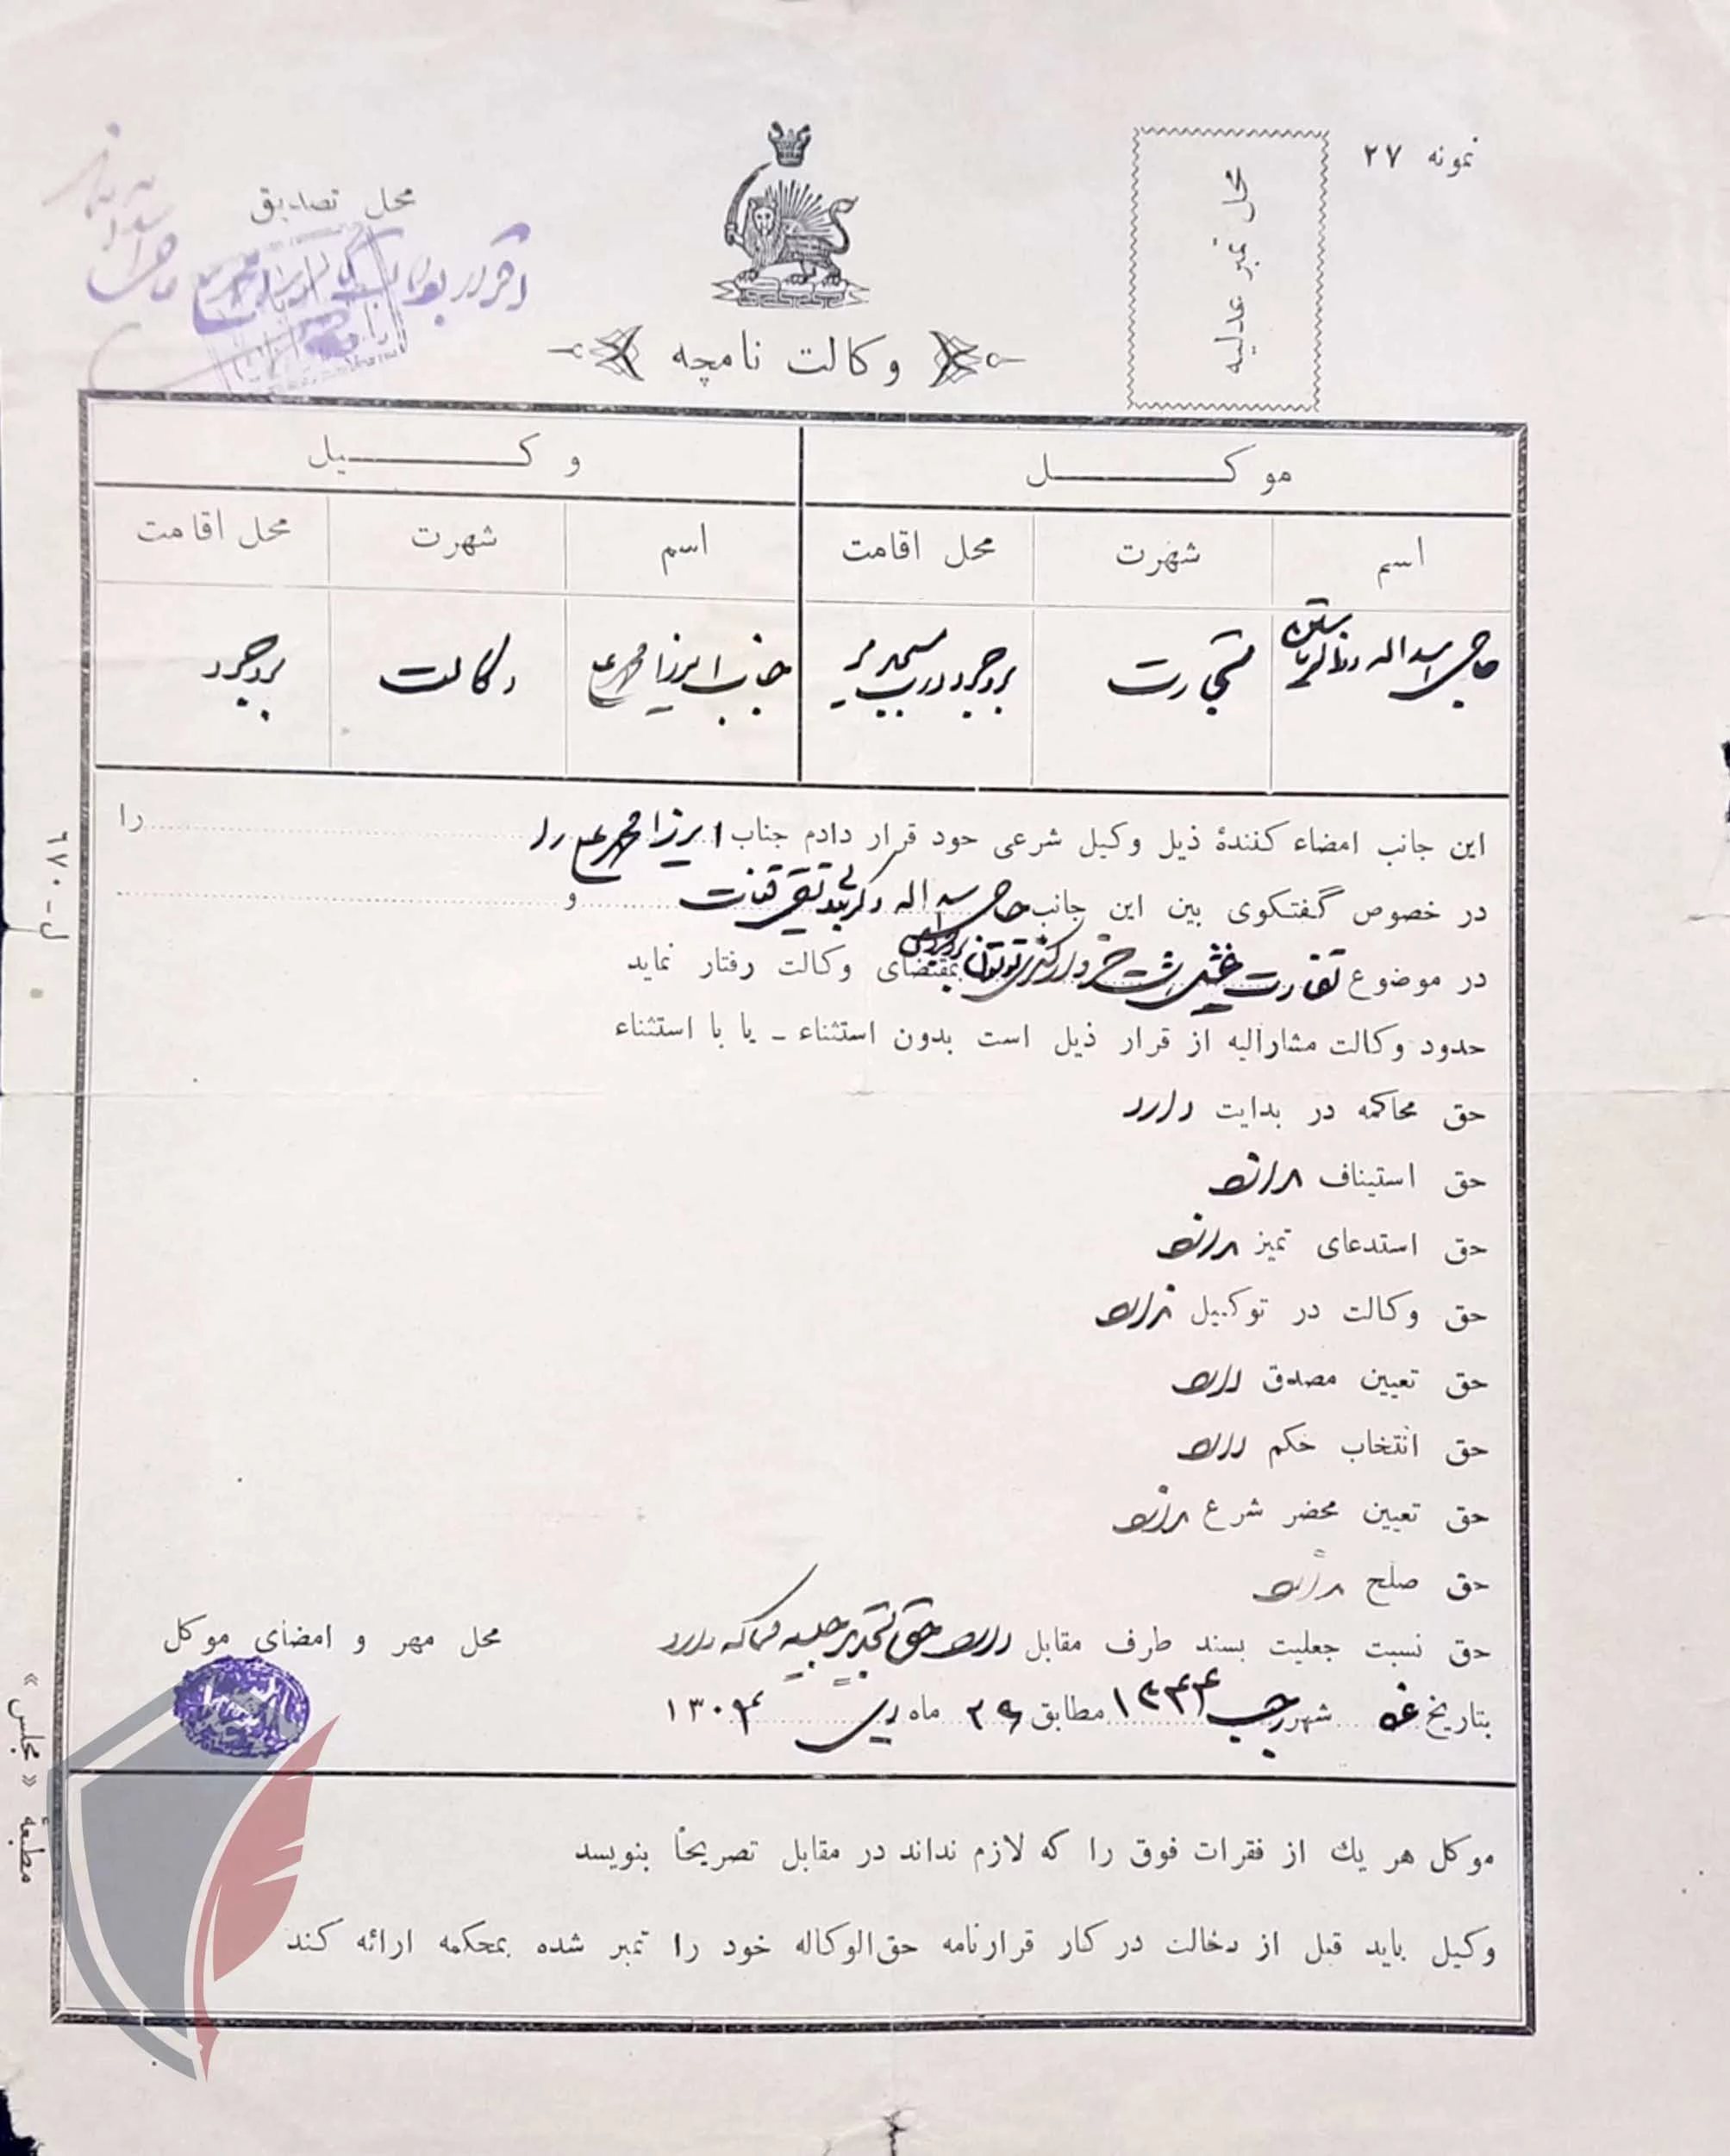 نمونه ۲۷
محل نمبر عدلیه
محل تصدیق
وکالت نامچه
موکل
وکیل
اسم شهرت محل اقامت اسم شهرت محل اقامت
حاجی اسداله تجارت بروجرد درب مسجد جناب میرزا محمد علی وکالت بروجرد
این جانب امضاء کنندهٔ ذیل وکیل شرعی خود قرار دادم جناب میرزا محمد علی را را
در خصوص گفتگوی بین این جانب حاجی اسداله و کربلائی تقی قنات و
در موضوع بمقتضای وکالت رفتار نماید
حدود وکالت مشارالیه از قرار ذیل است بدون استثناء - یا با استثناء
حق محاکمه در بدایت دارد
حق استیناف دارد
حق استدعای تمیز دارد
حق وکالت در توکیل ندارد
حق تعیین مصدق دارد
حق انتخاب حکم دارد
حق تعیین محضر شرع ندارد
حق صلح ندارد
حق نسبت جعلیت بسند طرف مقابل دارد حق تجدید جلسه محاکمه دارد
محل مهر و امضای موکل
بتاریخ شهر رجب ۱۳۴۴ مطابق ۲۹ ماه دی ۱۳۰۴
موکل هر یك از فقرات فوق را که لازم نداند در مقابل تصریحاً بنویسد
وکیل باید قبل از دخالت در کار قرارنامه حق‌الوکاله خود را تمبر شده بمحکمه ارائه کند
ل-۶۷۰
مطبعهٔ «مجلس»